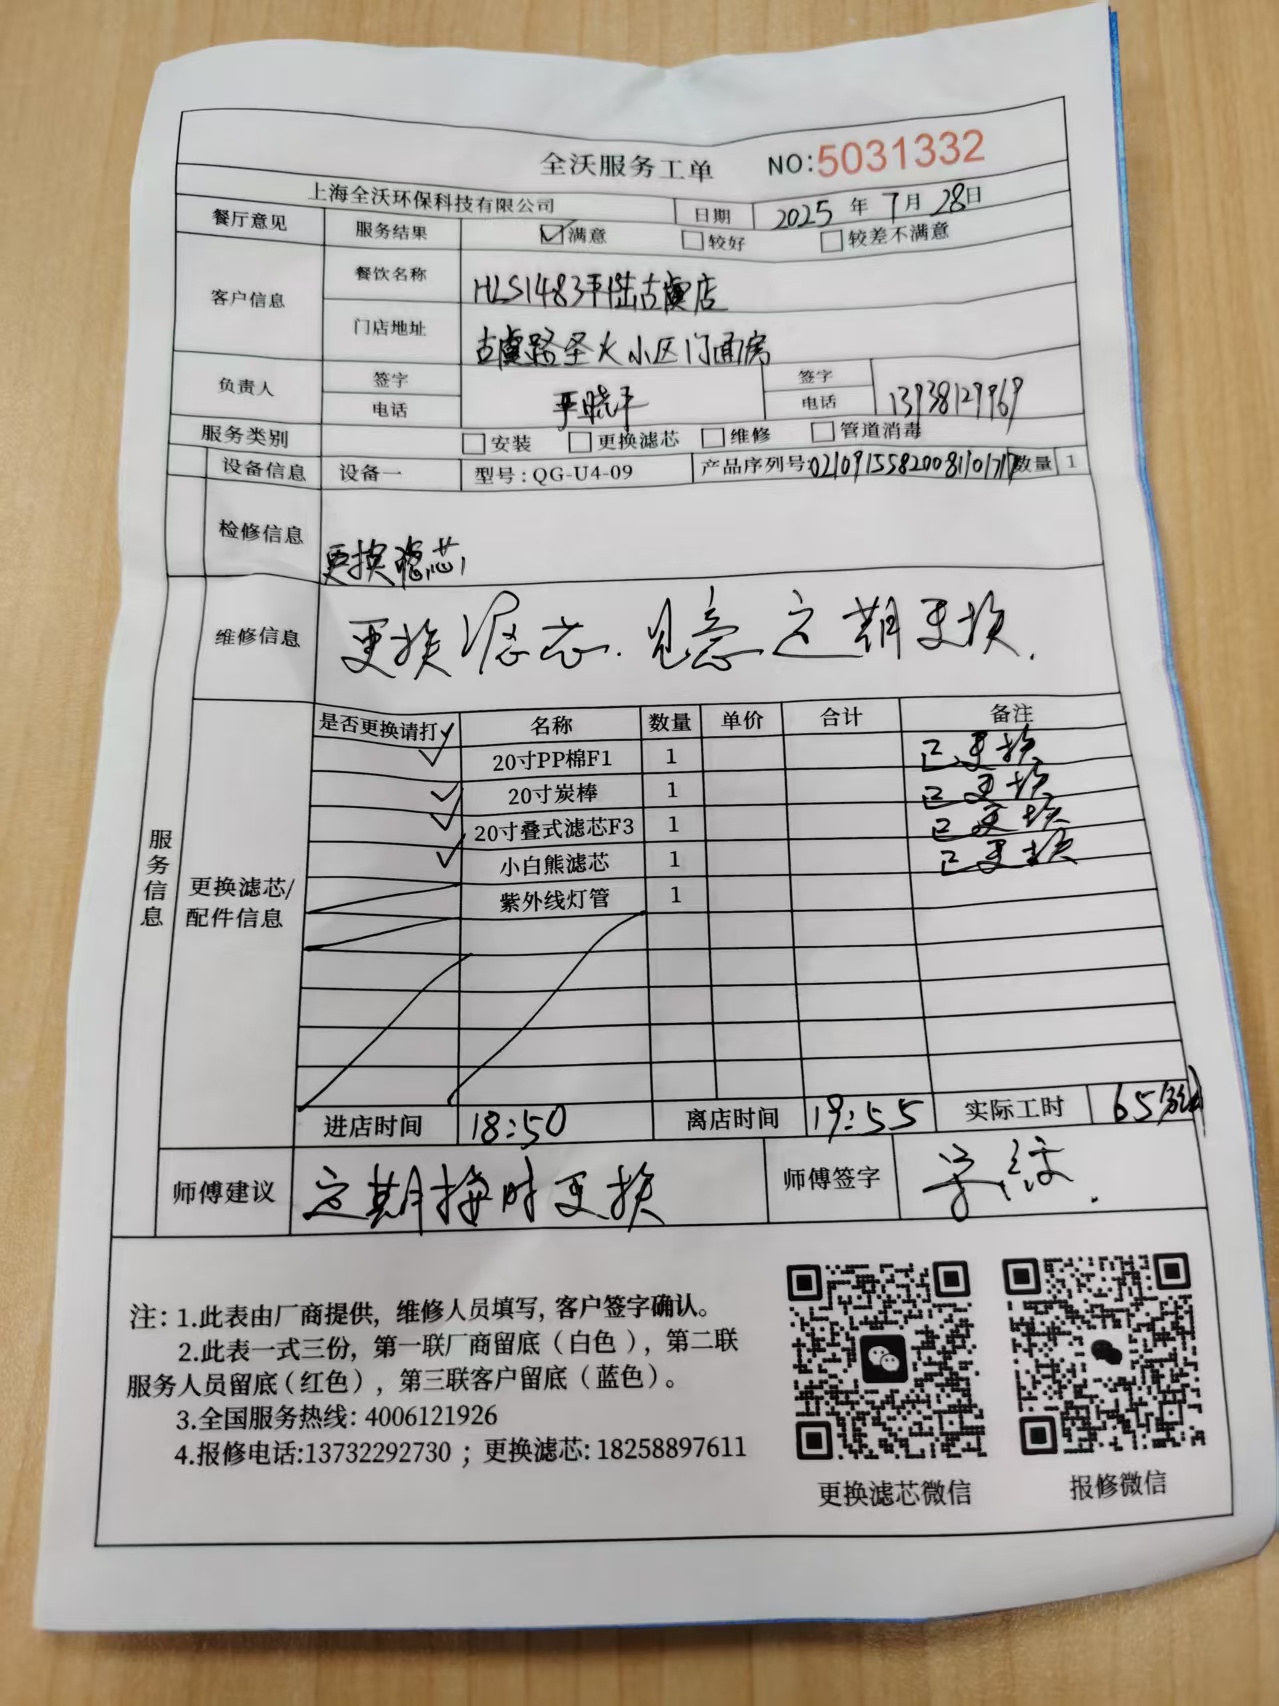 全沃服务工单 NO:5031332
上海全沃环保科技有限公司 日期 2025年7月28日
餐厅意见 服务结果 ☑满意 □较好 □较差不满意
客户信息 餐饮名称 HLS1483平陆古虞店
门店地址 古虞路圣火小区门面房
负责人 签字 签字
电话 晓平 电话 13938129969
服务类别 □安装 □更换滤芯 □维修 □管道消毒
设备信息 设备一 型号:QG-U4-09 产品序列号: 数量 1
检修信息 更换滤芯
维修信息 更换滤芯.见意定期更换.
是否更换请打✓ 名称 数量 单价 合计 备注
✓ 20寸PP棉F1 1 已更换
✓ 20寸炭棒 1 已更换
✓ 20寸叠式滤芯F3 1 已更换
✓ 小白熊滤芯 1 已更换
紫外线灯管 1
服务信息
更换滤芯/
配件信息
进店时间 18:50 离店时间 19:55 实际工时 65分钟
师傅建议 定期按时更换 师傅签字
注: 1.此表由厂商提供, 维修人员填写, 客户签字确认。
2.此表一式三份, 第一联厂商留底(白色), 第二联
服务人员留底(红色), 第三联客户留底(蓝色)。
3.全国服务热线: 4006121926
4.报修电话:13732292730 ; 更换滤芯: 18258897611
更换滤芯微信 报修微信